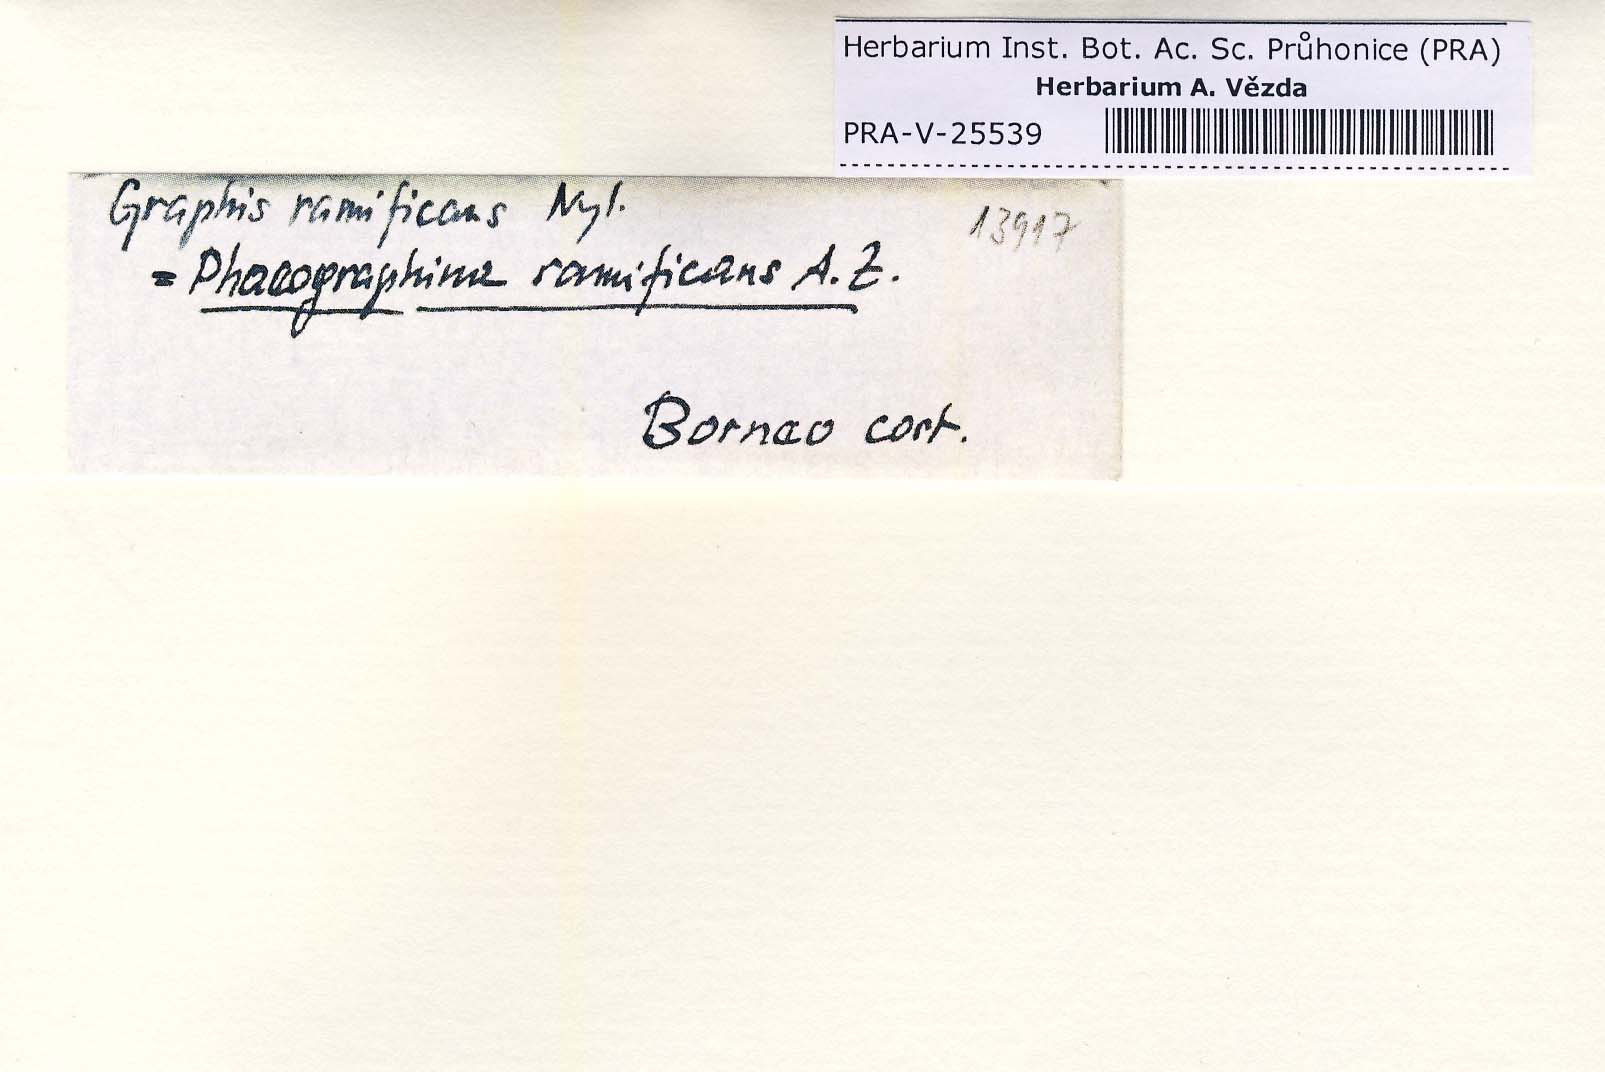 Herbarium Inst. Bot. Ac. Sc. Průhonice (PRA)
Herbarium A. Vězda
PRA-V-25539
Graphis ramificans Nyl.
13917
= Phaeographina ramificans A. Z.
Borneo cort.